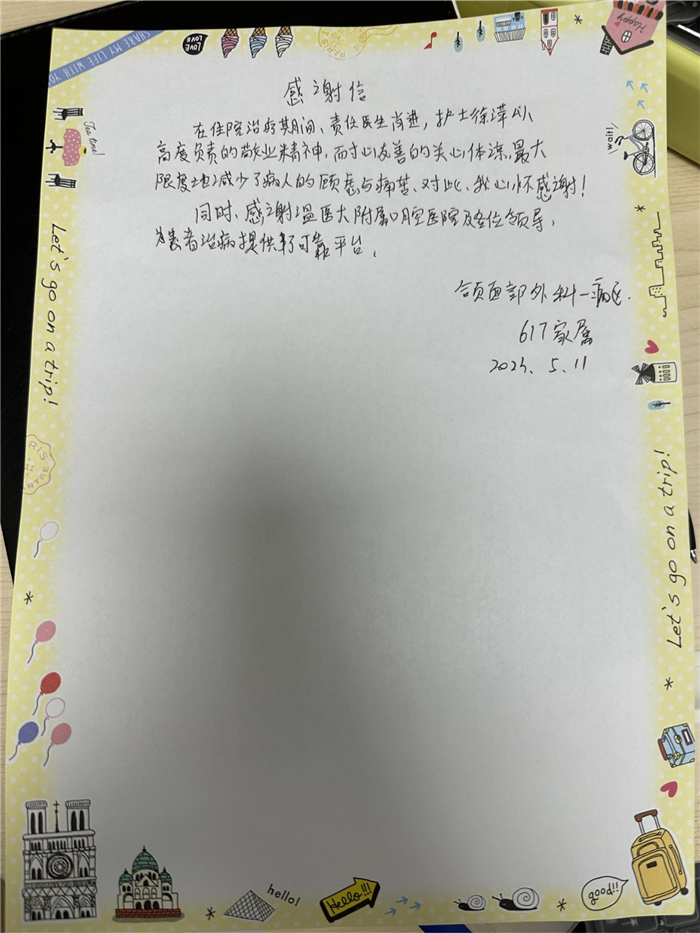 SHARE MY LIFE WITH YO
LOVE LOVE
Happy
Tea time!
wait!
感谢信
在住院治疗期间、责任医生肖进,护士徐萍以
高度负责的敬业精神,耐心友善的关心体谅,最大
限度地减少了病人的顾虑与痛苦、对此、我心怀感谢!
同时、感谢温医大附属口腔医院及各位领导,
为患者治病提供了可靠平台、
颌面部外科一病区.
617家属
2023、5.11
Let's go on a trip!
Let's go on a trip!
hello!
Hello!!!
good!!